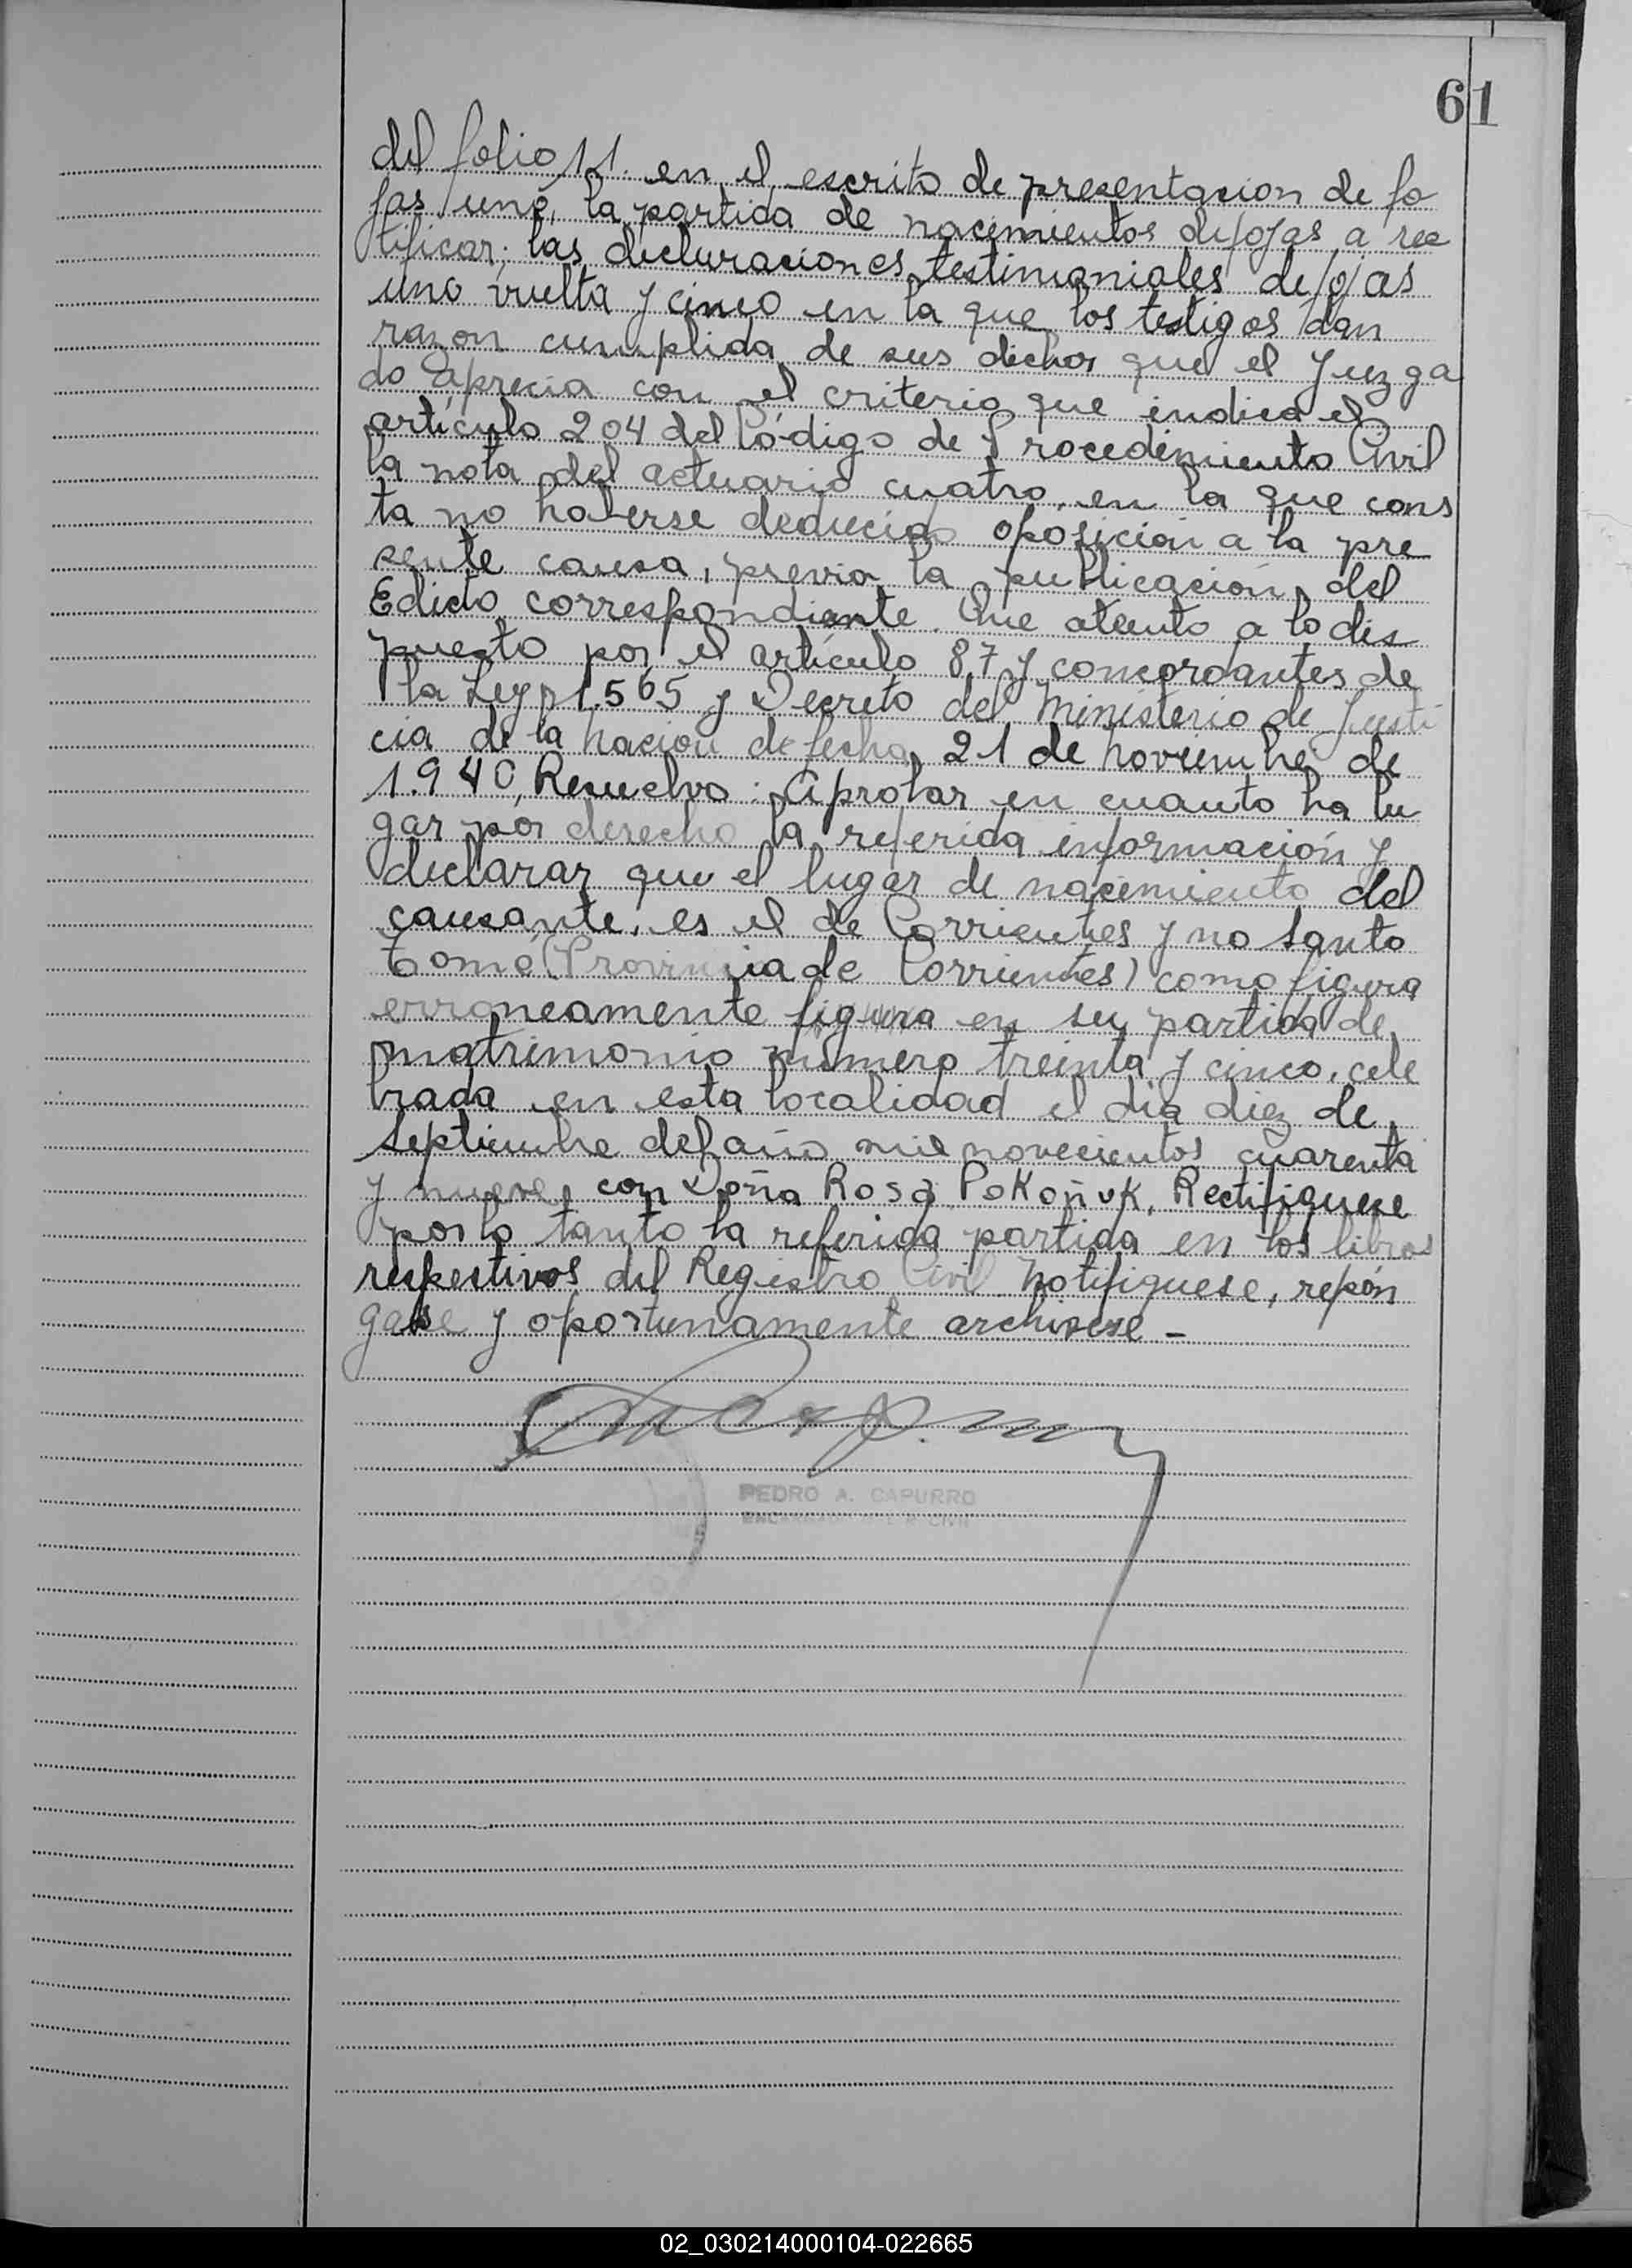 61
del folio 11. en el escrito de presentacion de fo
jas uno, la partida de nacimientos de fojas a rec
tificar; las decluraciones testimoniales de fojas
uno vuelta y cinco en la que los testigos dan
razon cumplida de sus dichos que el Juzga
do aprecia con el criterio que indica el
artículo 204 del Código de Procedimiento Civil
la nota del actuario cuatro, en la que cons
ta no haberse deducido oposición a la pre
sente causa, previa la publicación del
Edicto correspondiante. Que atento a lo dis
puesto por el artículo 87 y concordantes de
la Ley 1.565 y Decreto del Ministerio de Justi
cia de la nacion de fecha 21 de noviembre de
1.940, Resuelvo: Aprobar en cuanto ha lu
gar por derecho la referida información y
declarar que el lugar de nacimiento del
causante, es el de Corrientes y no Santo
tomé (Provincia de Corrientes) como figura
erroneamente figura en su partida de
matrimonio número treinta y cinco, cele
brada en esta localidad el dia diez de
septiembre del año mil novecientos cuarenta
y nueve, con Doña Rosa PoKoñuK, Rectifiquese
por lo tanto la referida partida en los libros
respestivos del Registro Civil notifiquese, repón
gase y oportunamente archivese -
PEDRO A. CAPURRO
02_030214000104-022665